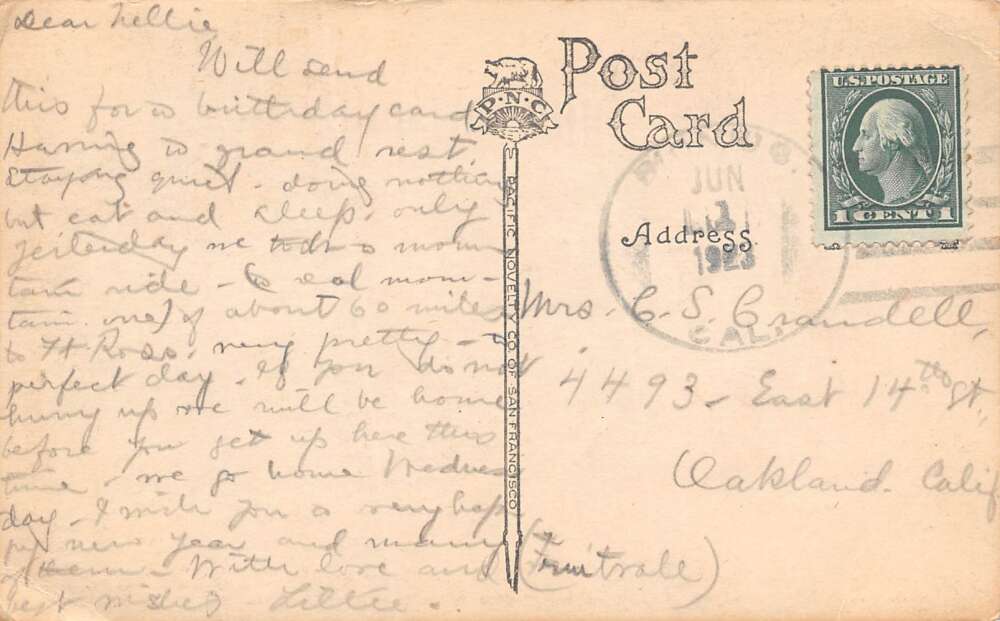 Dear Nellie,
Will send
this for a birthday card
Having a grand rest,
staying quiet - doing nothing
but eat and sleep. only
yesterday we took a moun
tain ride - a real moun-
tain one) of about 60 miles
to Ft Ross. very pretty - a
perfect day. If you do not
hurry up we will be home
before you get up here this
time - we go home Wednes
day - I wish you a very hap
py new year and many
of them - With love and
best wishes Lillie.
Post
Card
P.N.C.
PACIFIC NOVELTY CO. OF SAN FRANCISCO
Address
U.S. POSTAGE
1 CENT 1
JUN
1
1923
CALIF
Mrs. C. S. Crandell,
4493 - East 14th St.
Oakland. Calif
(Fruitvale)